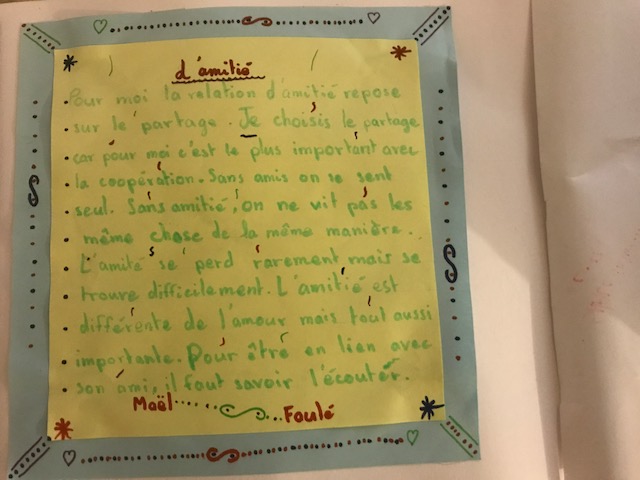 d'amitié
Pour moi la relation d'amitié repose
sur le partage. Je choisis le partage
car pour moi c'est le plus important avec
la coopération. Sans amis on se sent
seul. Sans amitié, on ne vit pas les
même chose de la même manière.
L'amité se perd rarement mais se
trouve difficilement. L'amitié est
différente de l'amour mais tout aussi
importante. Pour être en lien avec
son ami, il faut savoir l'écouter.
Maël Foulé